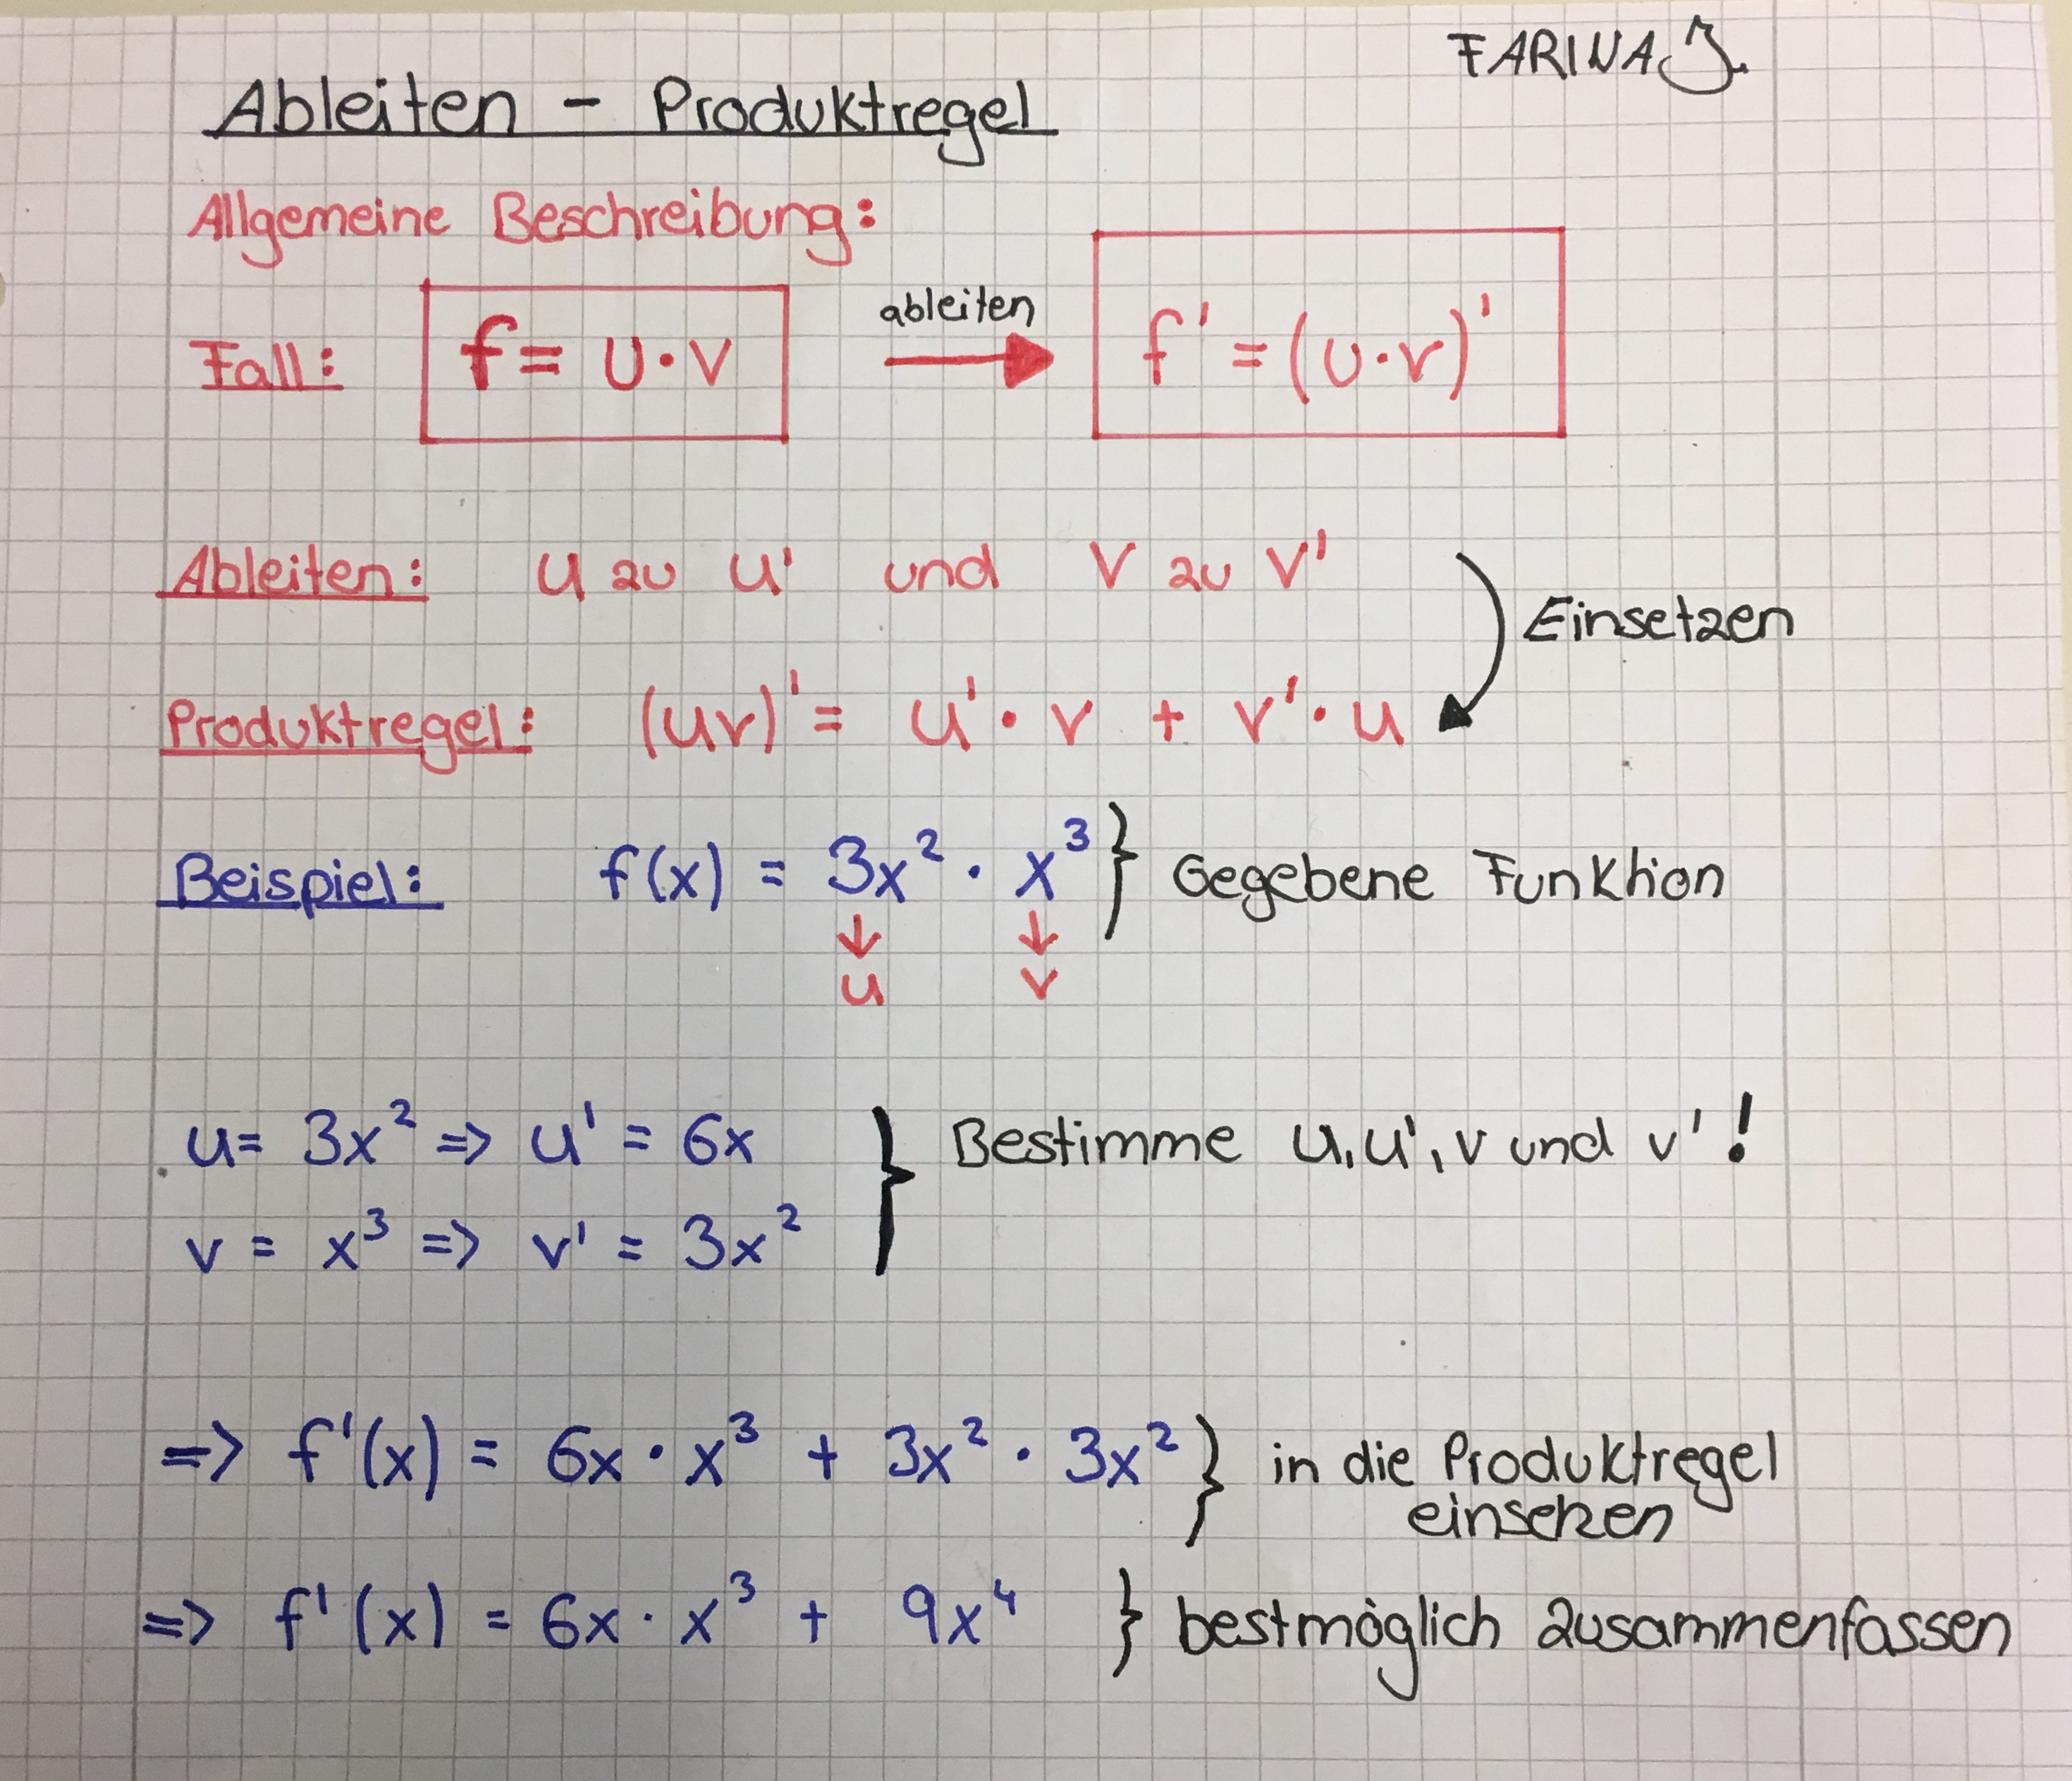 FARINA J.
Ableiten - Produktregel
Allgemeine Beschreibung:
Fall: f = u · v ableiten f' = (u · v)'
Ableiten: u zu u' und v zu v'
Einsetzen
Produktregel: (uv)' = u' · v + v' · u
Beispiel: f(x) = 3x² · x³ } Gegebene Funktion
↓ ↓
u v
u = 3x² => u' = 6x } Bestimme u, u', v und v'!
v = x³ => v' = 3x²
=> f'(x) = 6x · x³ + 3x² · 3x² } in die Produktregel
einsetzen
=> f'(x) = 6x · x³ + 9x⁴ } bestmöglich zusammenfassen